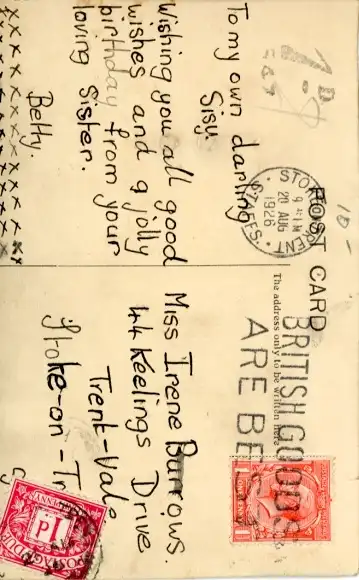 To my own darling
Sisy.
Wishing you all good
wishes and a jolly
birthday from your
loving Sister.
Betty.
xxxxxxxxxxxxxxx
xxxxxxxxxxxxxxx
POST CARD
The address only to be written here
STOKE TRENT
9 AM
20 AUG
1926
STAFFS.
BRITISH GOODS
ARE BEST
Miss Irene Burrows.
44 Keelings Drive
Trent-Vale
Stoke-on-Tr
POSTAGE DUE
1D
PENNY